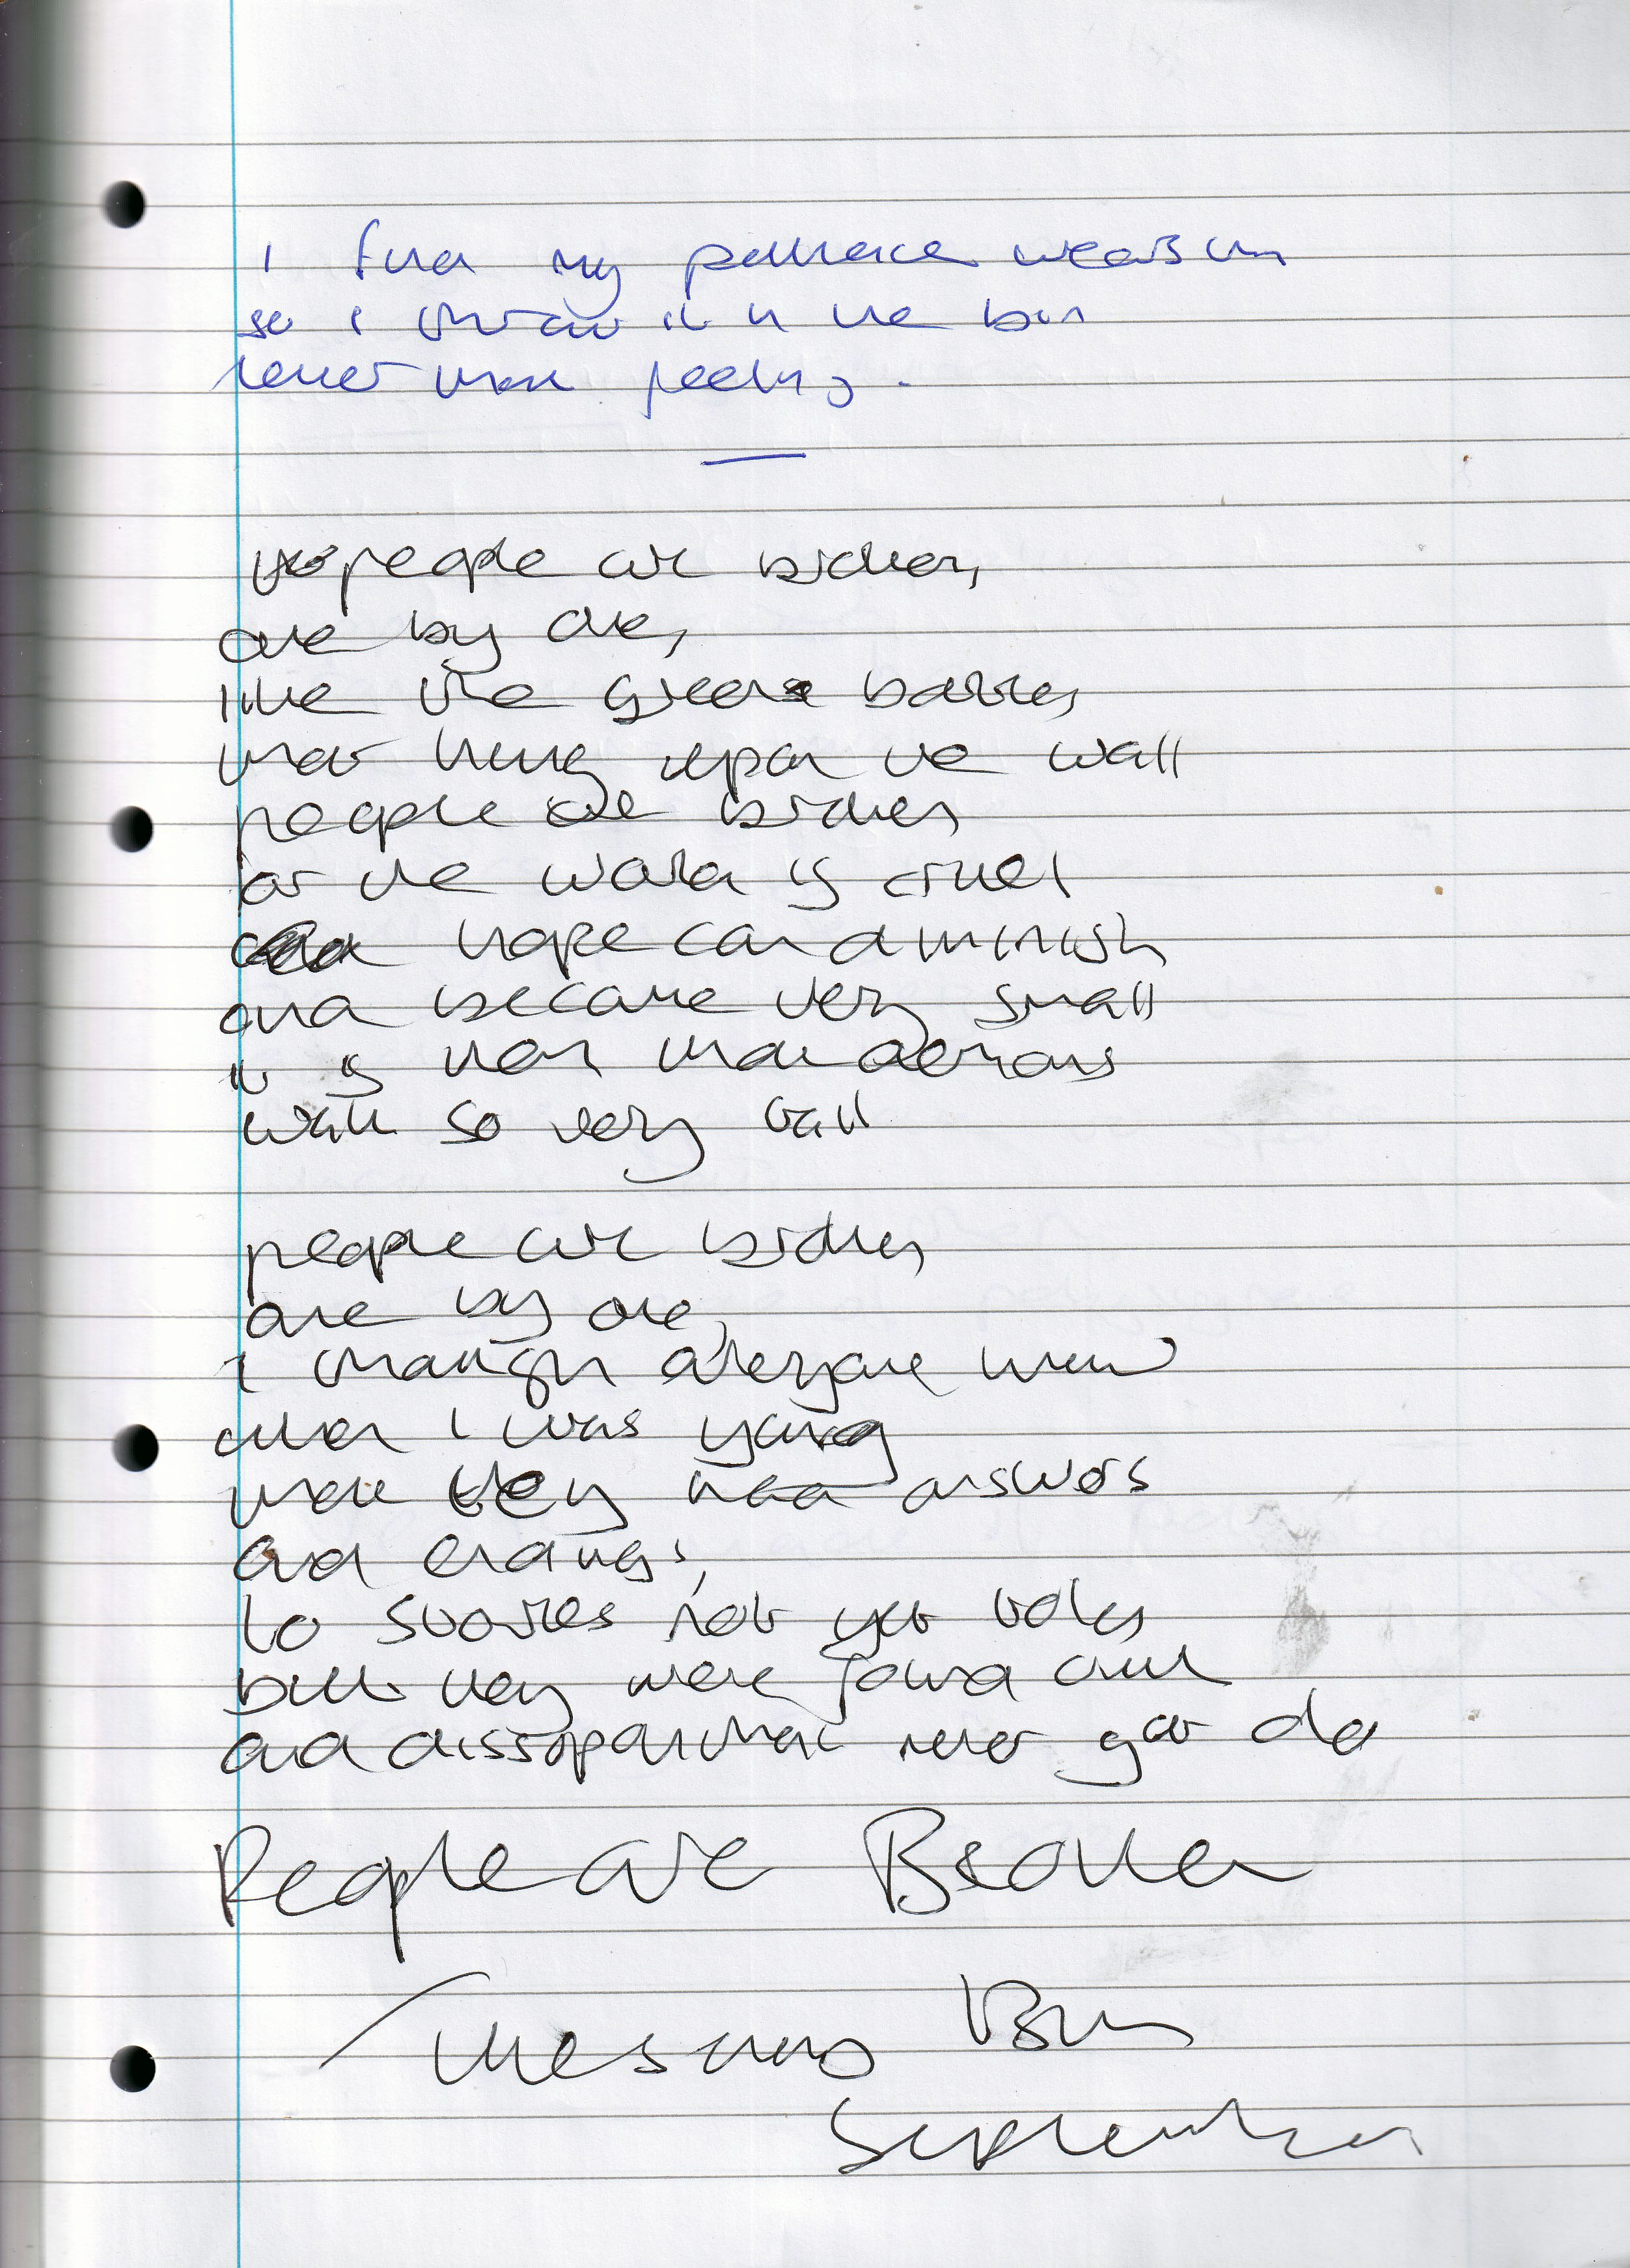 I find my patience wearing
so I throw it in the bin
never more feeling.
people are broken,
one by one,
like the green bottles
that hung upon the wall
people are broken
for the world is cruel
hope can diminish
and become very small
it is then that demons
walk so very tall
people are broken
one by one,
I thought everyone knew
when I was young
that they had answers
and endings,
to stories not yet told
but they were found out
and disappointment never got old
People are Broken
September